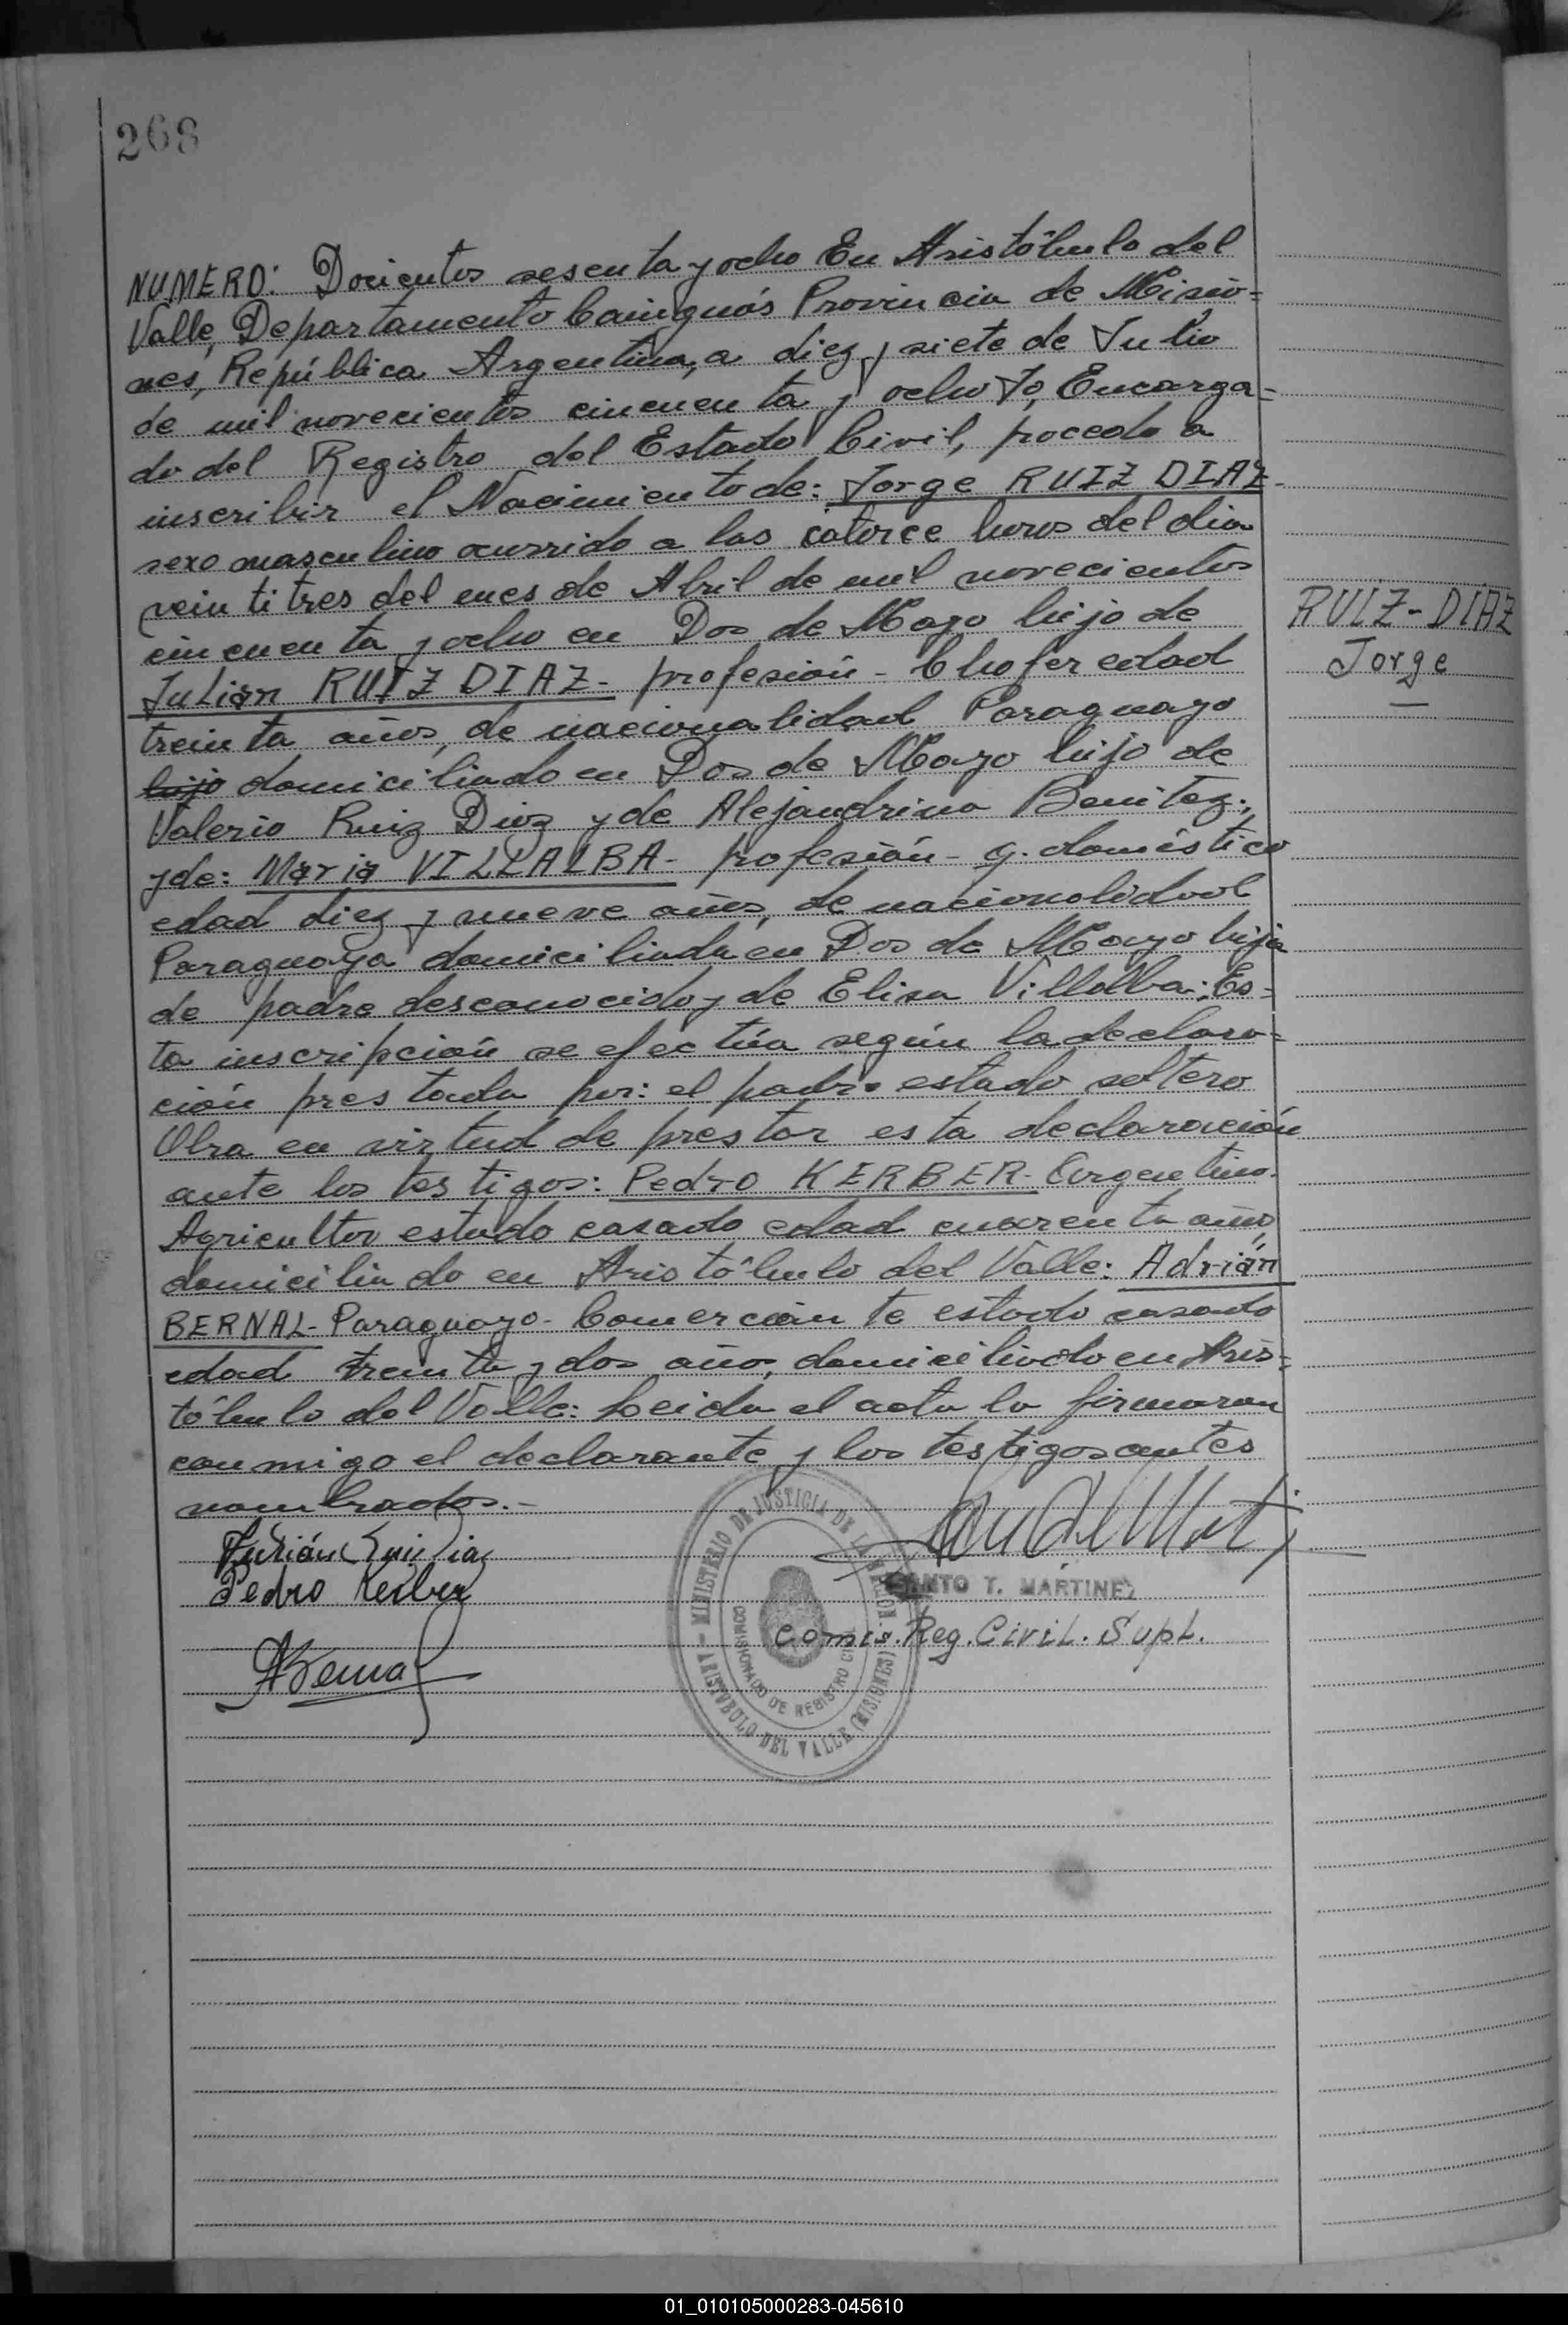 268
NUMERO: Docientos sesenta y ocho En Aristóbulo del
Valle, Departamento Cainguás Provincia de Misio=
nes, República Argentina, a diez y siete de Julio
de mil novecientos cincuenta y ocho Yo, Encarga=
do del Registro del Estado Civil, procedo a
inscribir el Nacimiento de: Jorge RUIZ DIAZ-
sexo masculino ocurrido a las catorce horas del dia
veintitres del mes de Abril de mil novecientos
cincuenta y ocho en Dos de Mayo hijo de
RUIZ-DIAZ
Jorge
Julian RUIZ DIAZ- profesión - Chofer edad
treinta años, de nacionalidad Paraguayo
hijo domiciliado en Dos de Mayo hijo de
Valerio Ruiz Diaz y de Alejandrina Benitez;
y de: Maria VILLALBA- profesión - q. doméstico
edad diez y nueve años, de nacionalidad
Paraguaya domiciliada en Dos de Mayo hija
de padre desconocido y de Elisa Villalba; Es=
ta inscripción se efectúa según la declara=
ción prestada por: el padre estado soltero
Obra en virtud de prestar esta declaración
ante los testigos: Pedro KERBER- Argentino-
Agricultor estado casado edad cuarenta años,
domiciliado en Aristóbulo del Valle: Adrián
BERNAL- Paraguayo- Comerciante estado casado
edad treinta y dos años, domiciliado en Aris=
tóbulo del Valle: Leida el acta la firmaron
conmigo el declarante y los testigos antes
nombrados.-
Julián Ruiz Diaz
Pedro Kerber
ABernal
SANTO T. MARTINEZ
Comis. Reg. Civil. Supl.
MINISTERIO DE JUSTICIA DE LA NACION
COMISIONADO DE REGISTRO CIVIL
ARISTOBULO DEL VALLE (MISIONES)
01_010105000283-045610